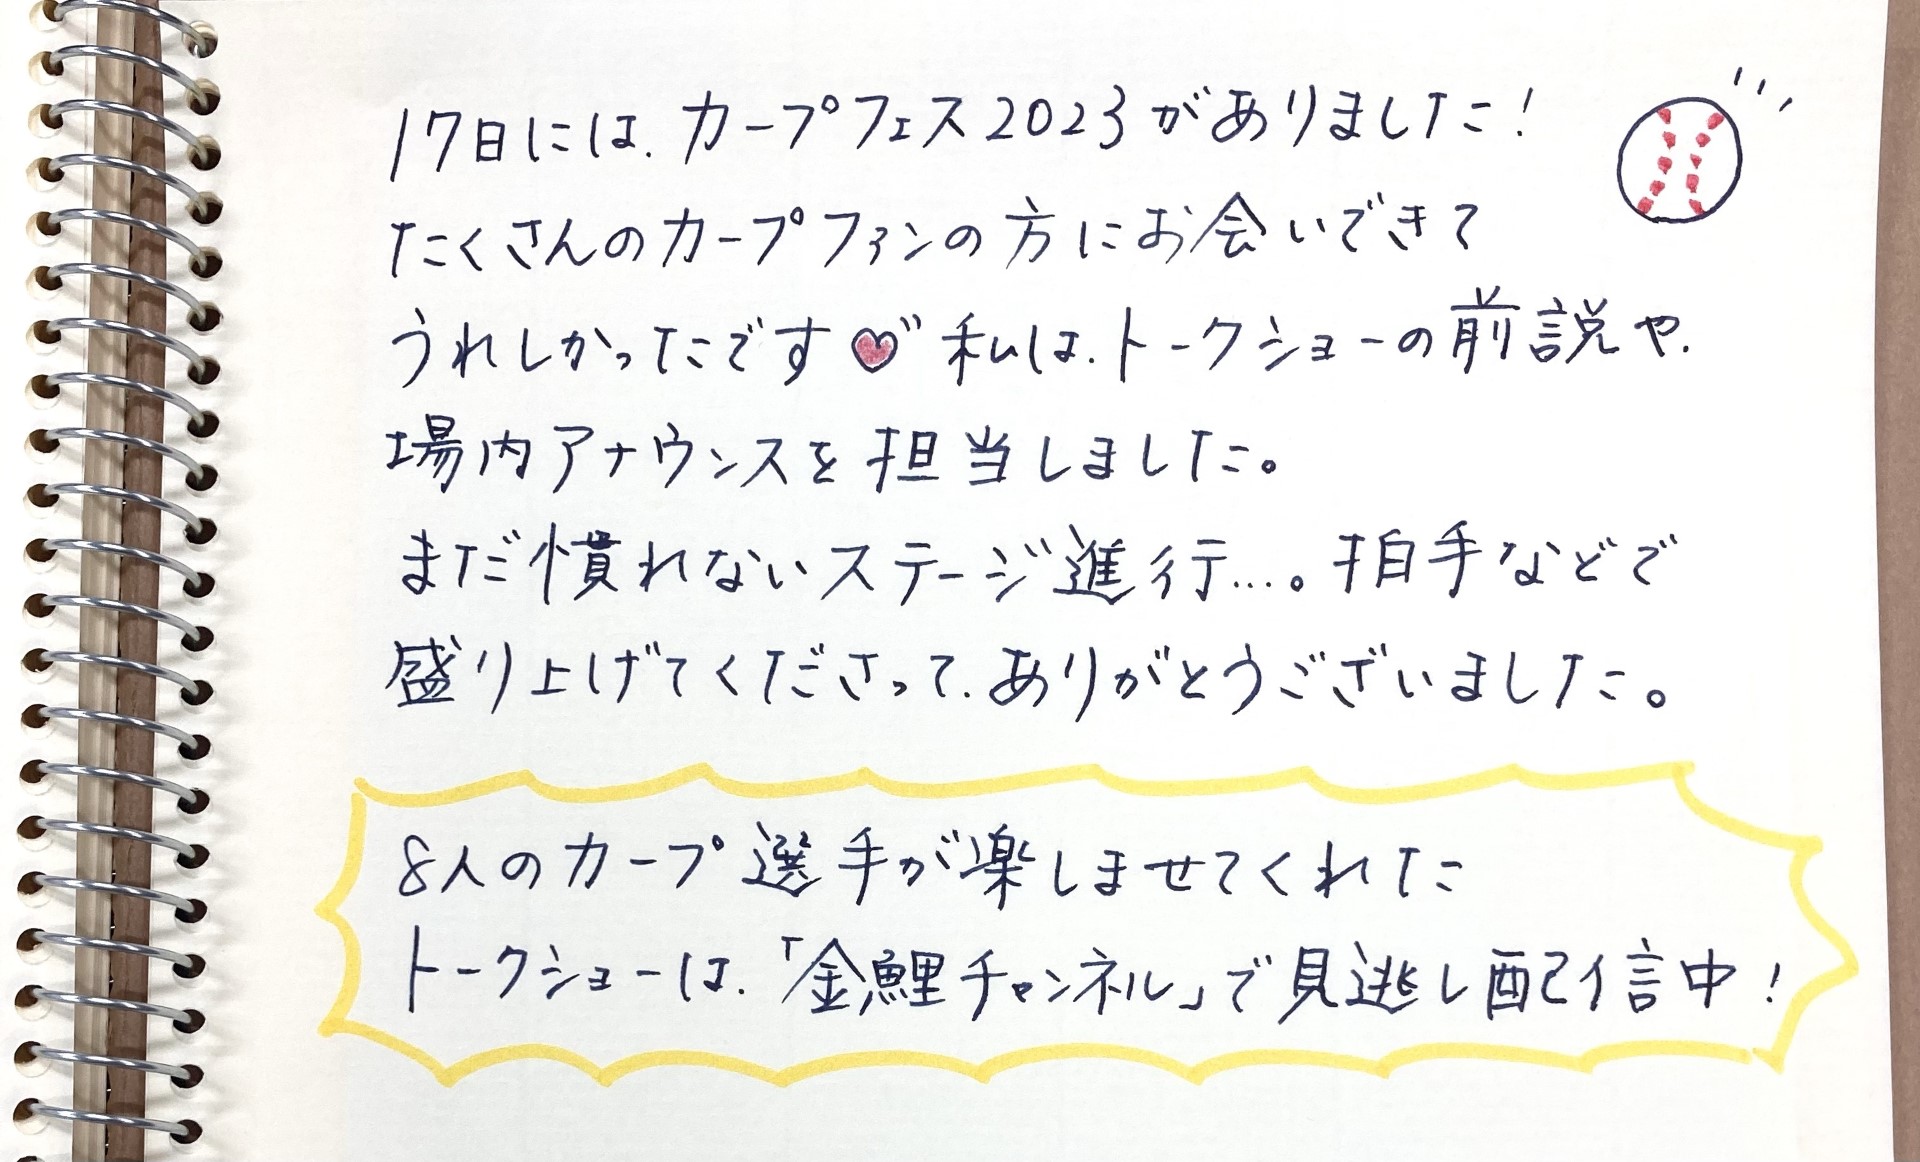 17日には、カープフェス2023がありました!
たくさんのカープファンの方にお会いできて
うれしかったです♥ 私は、トークショーの前説や、
場内アナウンスを担当しました。
まだ慣れないステージ進行…。拍手などで
盛り上げてくださって、ありがとうございました。
8人のカープ選手が楽しませてくれた
トークショーは、「金鯉チャンネル」で見逃し配信中!